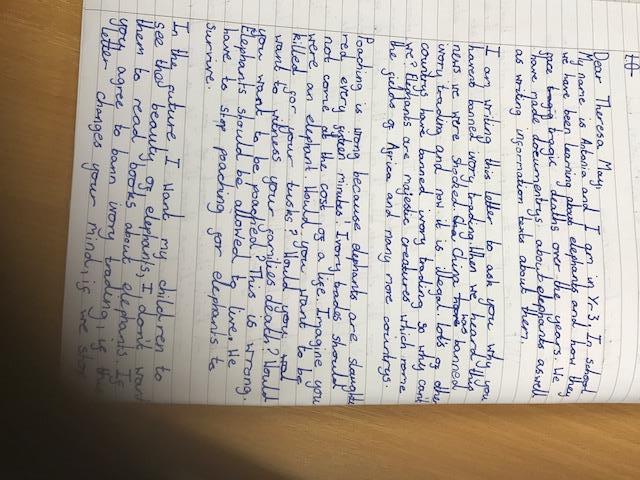 Dear Theresa May,
My name is and I am in Yr3. In school
we have been learning about elephants and how they
face tragic deaths over the years. We
have made documentrys about elephants as well
as writing information texts about them.
I am writing this letter to ask you why you
havent banned ivory trading. Then we heard this
news we were shocked China have banned
ivory trading and now it is illegal. Lots of other
countrys have banned ivory trading so why cant
we? Elephants are majestic creatures which rome
the fields of Africa and many more countrys.
Poaching is wrong because elephants are slaughte
red every fifteen minutes! Ivory trades should
not come at the cost of a life. Imagine you
were an elephant. Would you want to be
killed for your tusks? Would you
want to witness your families death? Would
you want to be poached? This is wrong.
Elephants should be allowed to live. We
have to stop poaching for elephants to
survive.
In the future I want my children to
see the beauty of elephants, I don't want
them to read books about elephants. If
you agree to bann ivory trading, if this
letter changes your mind, if we stop